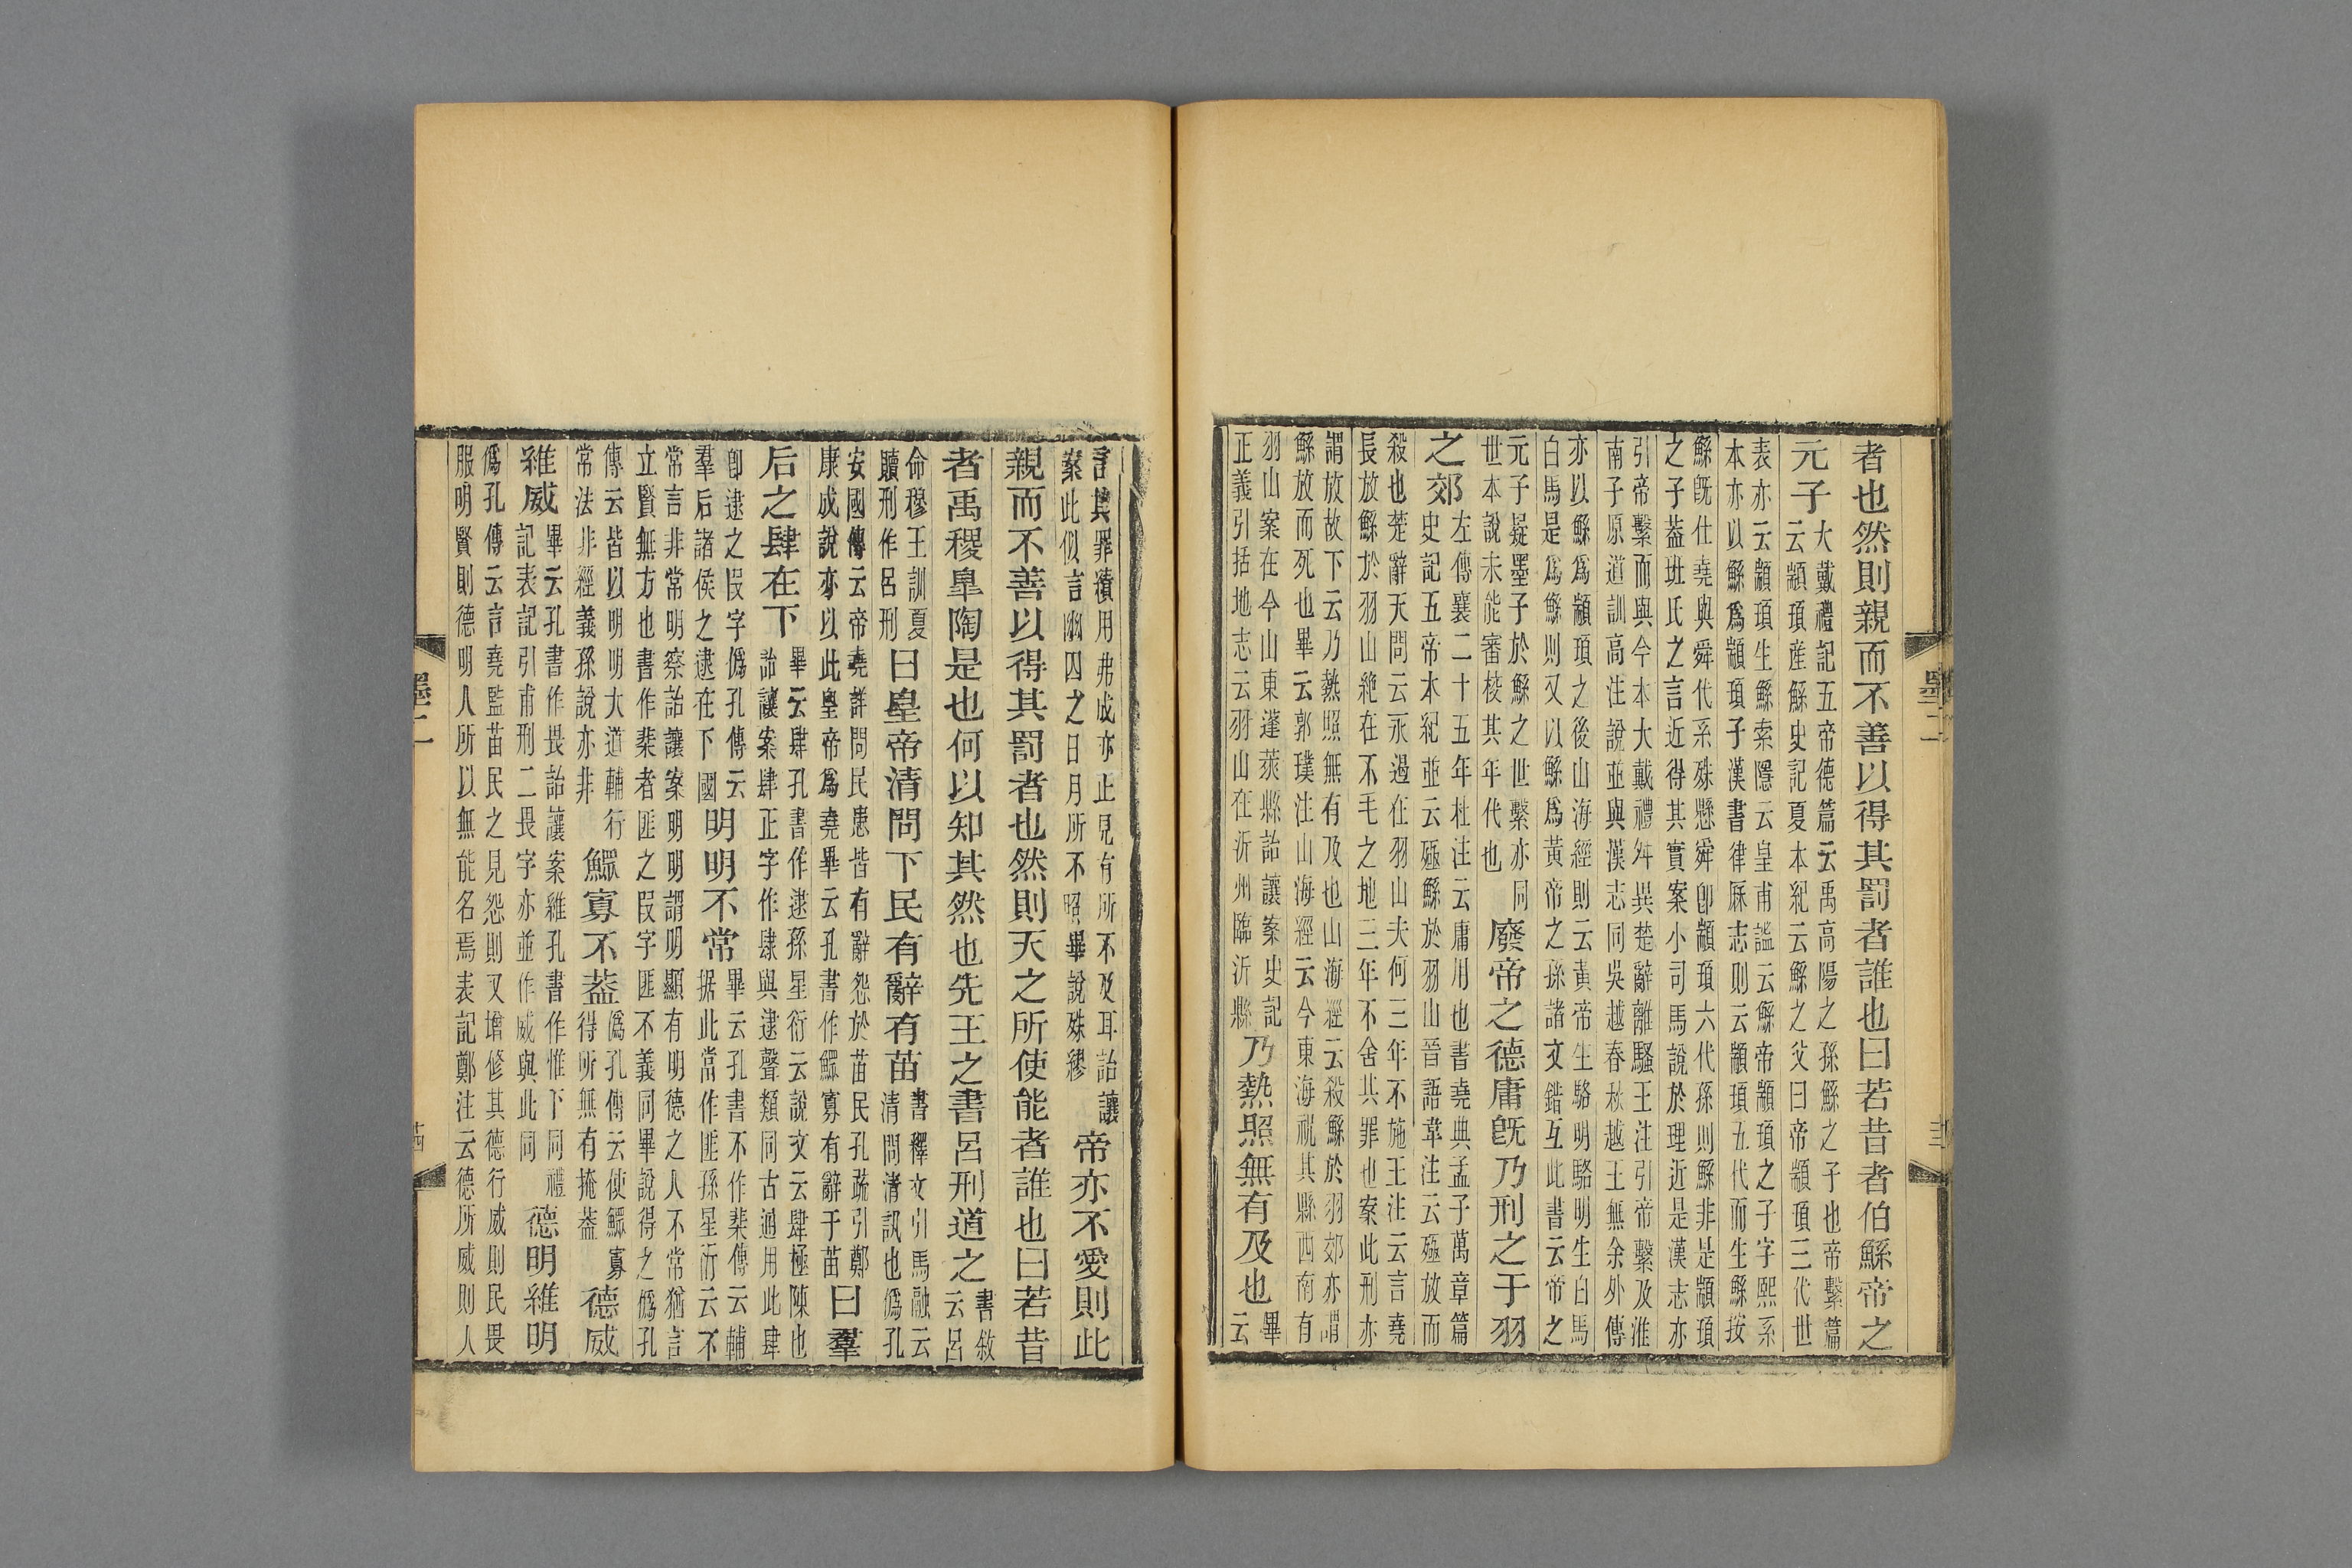 者也然則親而不善以得其罰者誰也曰若昔者伯鯀帝之
元子大戴禮記五帝德篇云禹高陽之孫鯀之子也帝繫篇
云顓頊產鯀史記夏本紀云鯀之父曰帝顓頊三代世
表亦云顓頊生鯀索隱云皇甫謐云鯀帝顓頊之子字熙系
本亦以鯀爲顓頊子漢書律厤志則云顓頊五代而生鯀按
鯀旣仕堯與舜代系殊懸舜卽顓頊六代孫則鯀非是顓頊
之子葢班氏之言近得其實案小司馬說於理近是漢志亦
引帝繫而與今本大戴禮舛異楚辭離騷王注引帝繫及淮
南子原道訓高注說並與漢志同吳越春秋越王無余外傳
亦以鯀爲顓頊之後山海經則云黃帝生駱明駱明生白馬
白馬是爲鯀則又以鯀爲黃帝之孫諸文錯互此書云帝之
元子疑墨子於鯀之世繫亦同
世本說未能審核其年代也廢帝之德庸旣乃刑之于羽
之郊左傳襄二十五年杜注云庸用也書堯典孟子萬章篇
史記五帝本紀並云殛鯀於羽山晉語韋注云殛放而
殺也楚辭天問云永遏在羽山夫何三年不施王注云言堯
長放鯀於羽山絶在不毛之地三年不舍其罪也案此刑亦
謂放故下云乃熱照無有及也山海經云殺鯀於羽郊亦謂
鯀放而死也畢云郭璞注山海經云今東海祝其縣西南有
羽山案在今山東蓬萊縣詒讓案史記
正義引括地志云羽山在沂州臨沂縣乃熱照無有及也畢
云
言其罪積用弗成亦止見有所不及耳詒讓
案此似言幽囚之日月所不照畢說殊繆帝亦不愛則此
親而不善以得其罰者也然則天之所使能者誰也曰若昔
者禹稷臯陶是也何以知其然也先王之書呂刑道之書敘
云呂
命穆王訓夏
贖刑作呂刑曰皇帝清問下民有辭有苗書釋文引馬融云
清問清訊也僞孔
安國傳云帝堯詳問民患皆有辭怨於苗民孔疏引鄭
康成說亦以此皇帝爲堯畢云孔書作鰥寡有辭于苗曰羣
后之肆在下畢云肆孔書作逮孫星衍云說文云肆極陳也
詒讓案肆正字作肆與逮聲類同古通用此肆
卽逮之叚字僞孔傳云
羣后諸侯之逮在下國明明不常畢云孔書不作棐傳云輔
据此當作匪孫星衍云不
常言非常明察詒讓案明明謂明顯有明德之人不常猶言
立賢無方也書作棐者匪之叚字匪不義同畢說得之僞孔
傳云皆以明明大道輔行
常法非經義孫說亦非鰥寡不葢僞孔傳云使鰥寡
得所無有掩葢德威
維威畢云孔書作畏詒讓案維孔書作惟下同禮
記表記引甫刑二畏字亦並作威與此同德明維明
僞孔傳云言堯監苗民之見怨則又增修其德行威則民畏
服明賢則德明人所以無能名焉表記鄭注云德所威則人
墨二